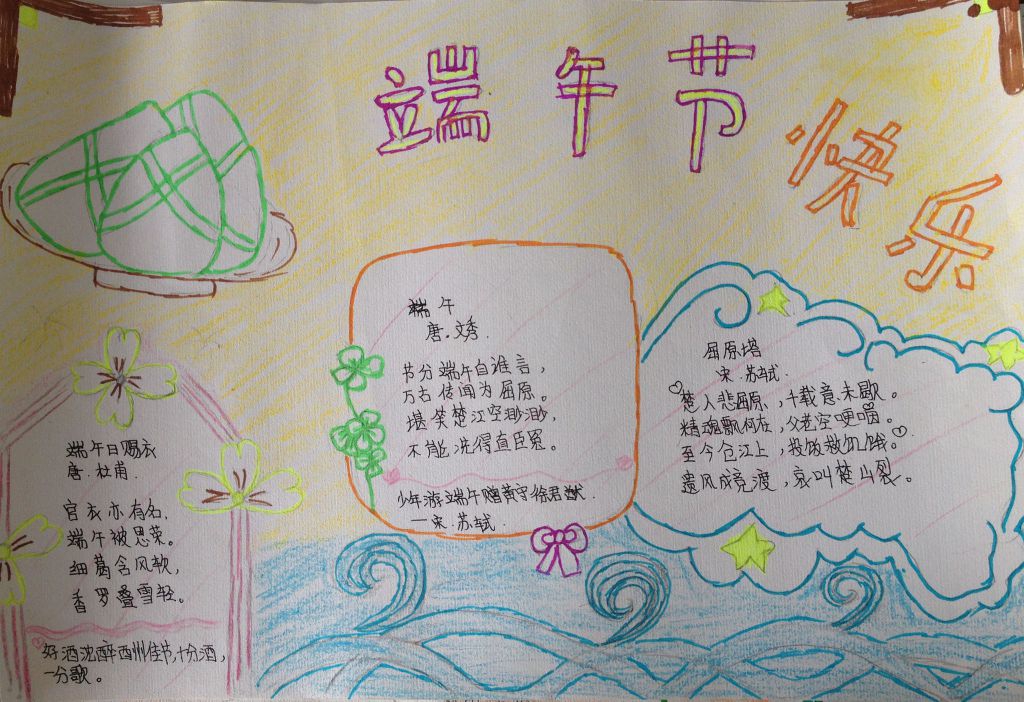 端午节
快乐
端午
唐.文秀.
节分端午自谁言，
万古传闻为屈原。
堪笑楚江空渺渺，
不能洗得直臣冤。
少年游端午赠黄守徐君猷.
—宋.苏轼.
屈原塔
宋.苏轼.
楚人悲屈原，千载意未歇。
精魂飘何在，父老空哽咽。
至今仓江上，投饭救饥饿。
遗风成竞渡，哀叫楚山裂。
端午日赐衣
唐.杜甫.
宫衣亦有名，
端午被恩荣。
细葛含风软，
香罗叠雪轻。
好酒沈醉西州佳节，十分酒，
一分歌。